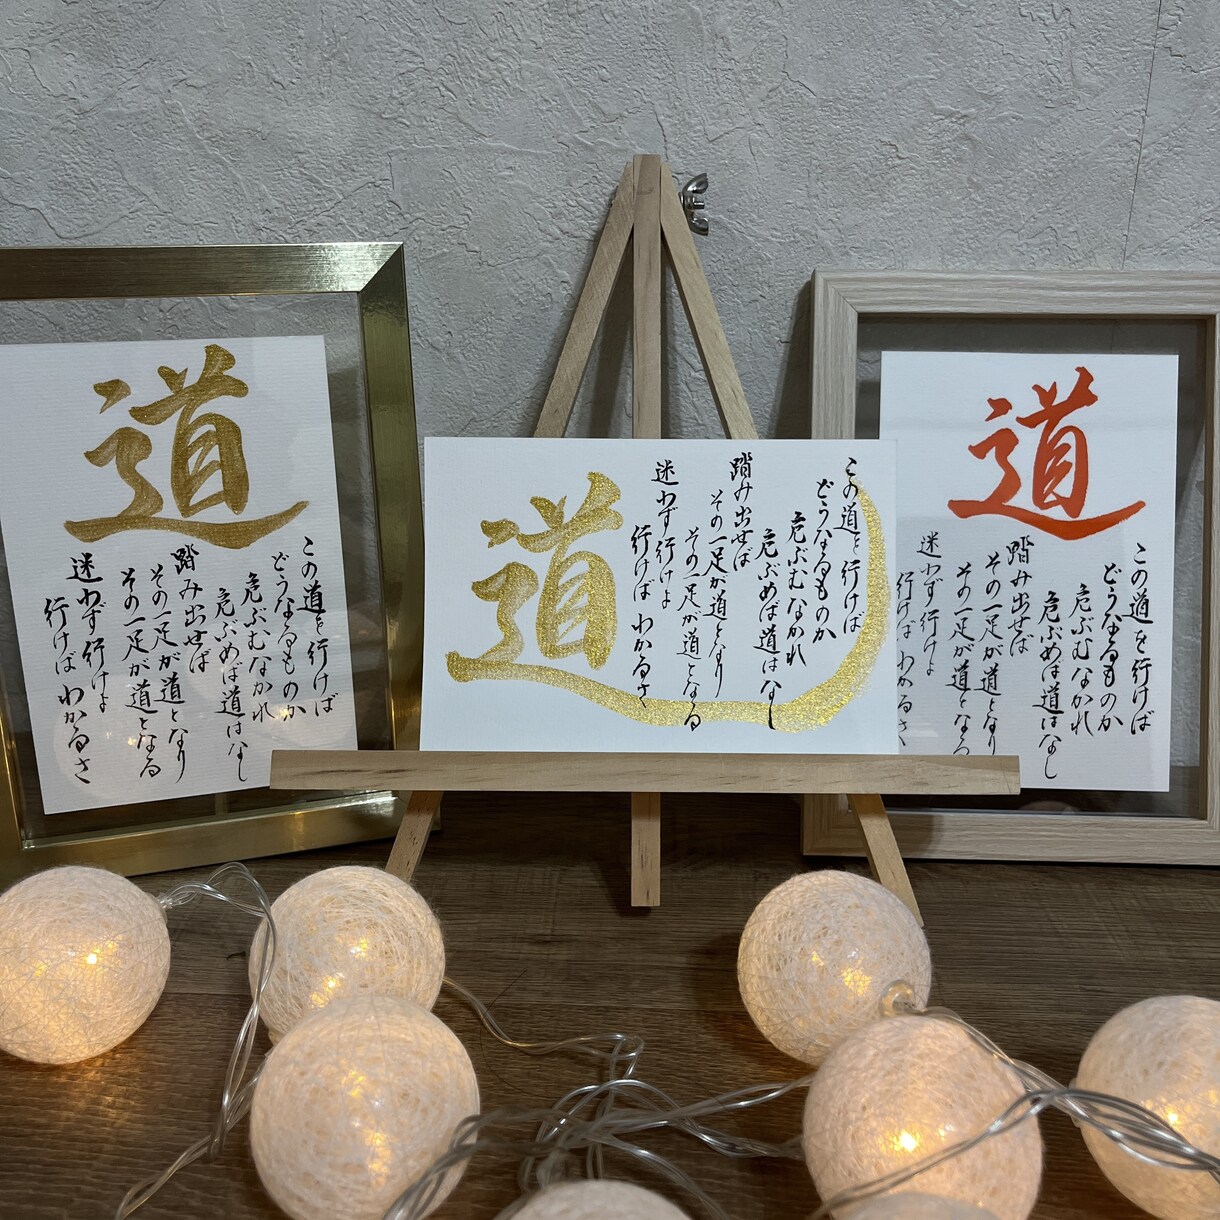 道
この道を行けば
どうなるものか
危ぶむなかれ
危ぶめば道はなし
踏み出せば
その一足が道となり
その一足が道となる
迷わず行けよ
行けば わかるさ
道
この道を行けば
どうなるものか
危ぶむなかれ
危ぶめば道はなし
踏み出せば
その一足が道となり
その一足が道となる
迷わず行けよ
行けば わかるさ
道
この道を行けば
どうなるものか
危ぶむなかれ
危ぶめば道はなし
踏み出せば
その一足が道となり
その一足が道となる
迷わず行けよ
行けば わかるさ